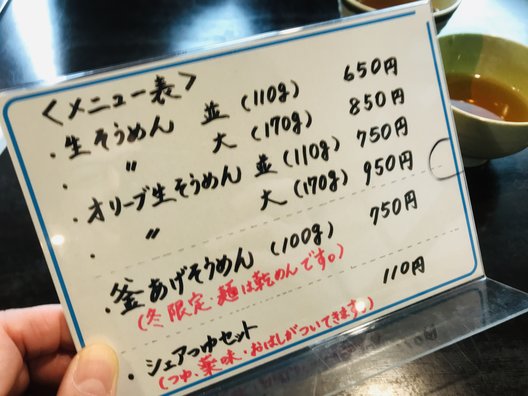 <メニュー表>
・生そうめん 並(110g) 650円
・ 〃 大(170g) 850円
・オリーブ生そうめん 並(110g) 750円
・ 〃 大(170g) 950円
・釜あげそうめん(100g) 750円
(冬限定・麺は乾めんです。)
・シェアつゆセット 110円
(つゆ・薬味・おはしがついてきます。)